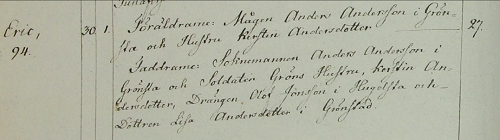 Eric, 30. 1. Föräldrarne: Mågen Anders Andersson i Grön-
94. sta och Hustru Kersten Andersdotter 27.
Faddrarne: Soknemannen Anders Andersson i
Grönsta och Soldaten Gröns Hustru, Kerstin An-
dersdotter, Drängen Olof Jonsson i Hugelsta och
Dottren Lisa Andersdotter i Grönstad.